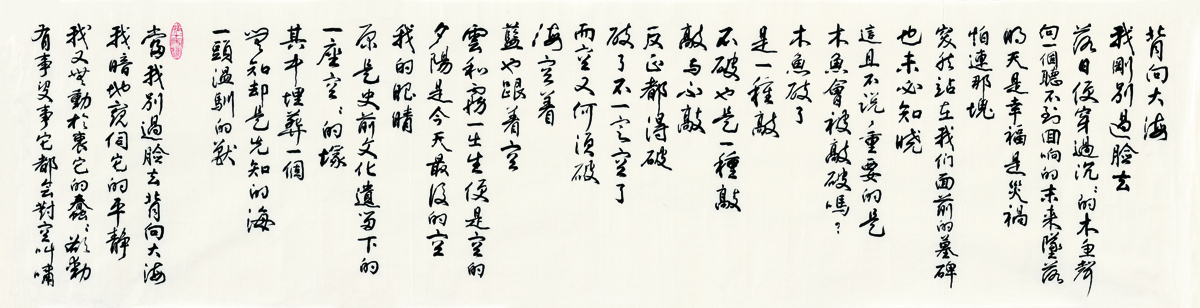 背向大海
我剛別過臉去
落日便穿過沉沉的木魚聲
向一個聽不到回响的未来墜落
明天是幸福是災禍
怕連那塊
突然站在我们面前的墓碑
也未必知晓
這且不说，重要的是
木魚會被敲破嗎？
木魚破了
是一種敲
不破也是一種敲
敲与不敲
反正都得破
破了不一定空了
而空又何須破
海空着
藍也跟着空
雲和霧一生生便是空的
夕陽是今天最後的空
我的眼睛
原是史前文化遺留下的
一座空空的塚
其中埋葬一個
無知却是先知的海
一頭温馴的獸
當我別過臉去背向大海
我暗地窺伺它的平静
我又無動於衷它的蠢蠢欲動
有事没事它都会對空叫嘯